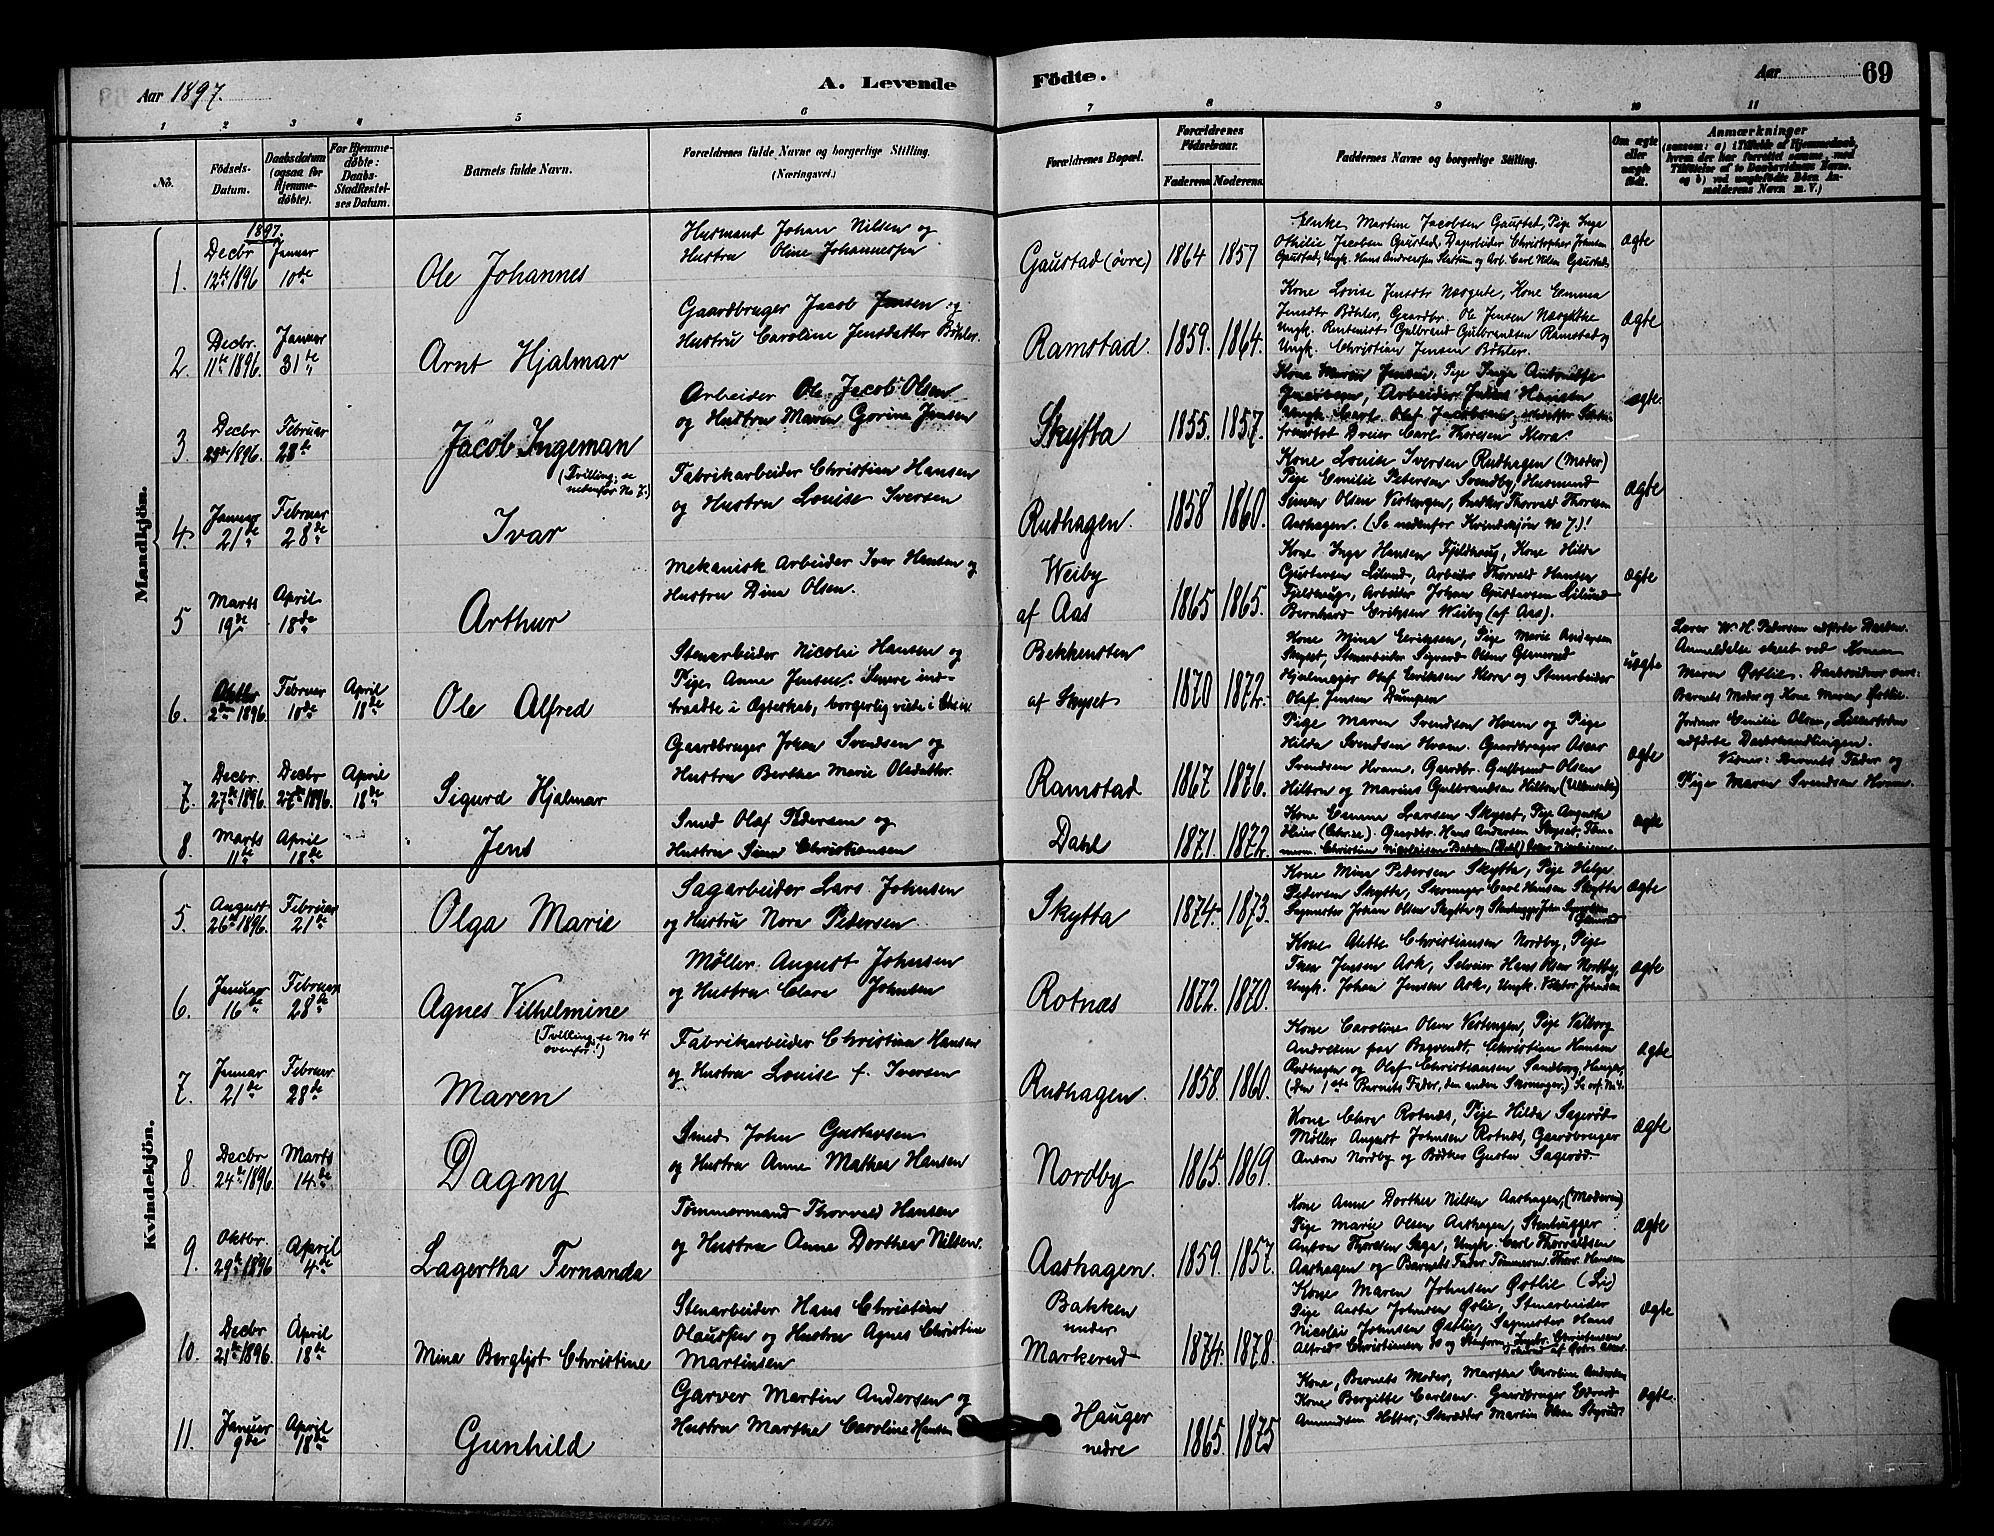 Aar 1897.
A. Levende
Fødte.
Aar
69
1 2 3 4 5 6 7 8 9 10 11
No.
Fødsels-Datum.
Daabsdatum (ogsaa for Hjemmedøbte).
For Hjemmedøbte: Daabs-Stadfæstelses Datum.
Barnets fulde Navn.
Forældrenes fulde Navne og borgerlige Stilling.
(Næringsvei.)
Forældrenes Bopæl.
Forældrenes Fødselsaar.
Faderens. Moderens.
Faddernes Navne og borgerlige Stilling.
Om ægte eller uægte født.
Anmærkninger
Mandkjøn.
1897.
1. Decbr 12te 1896 Januar 10de
Ole Johannes
Husmand Johan Nilsen og
Hustru Oline Johannessen
Gaustad (øvre) 1864 1857
Enke Martine Jacobsen Gaustad, Pige Inge
Othilie Jacobsen Gaustad, Dagarbeider Christopher Johnsen
Gaustad, Ungk. Hans Andreassen Slattum og Arb. Carl Nilsen Gaustad
ægte
2. Decbr. 11te 1896. Januar 31te
Arnt Hjalmar
Gaardbruger Jacob Jensen og
Hustru Caroline Jensdatter Bøhler.
Ramstad. 1859. 1864.
Kone Lovise Jensdtr Næsgute, Kone Emma
Jensdtr Bøhler, Gaardbr. Ole Jensen
Ungk. Rentenist Gulbrand Gulbrandsen Ramstad og
Ungk. Christian Jensen Bøhler.
ægte
3 Decbr 1896. Februar 28de
Jacob Ingeman
Arbeider Ole Jacob Olsen
og Hustru Maren Gorine Jensen
Skytta 1855. 1857.
Kone Maren Jensen, Pige
Jacobsen, Arbeider Hansen
Ungk. Carl Olaf Jacobsen,
Dreier Carl Thoresen Klora.
ægte.
4. Januar 21de Februar 28de
(Tvilling, se nedenfor No 7.)
Ivar
Fabrikarbeider Christian Hansen
og Hustru Louise Iversen
Rudhagen. 1858 1860.
Kone Louise Iversen Rudhagen (Moder)
Pige Emilie Petersen Svendby, Husmand
Simen Olsen Vestengen, Snedker Thorvald Thoresen
Aashagen. (Se nedenfor Kvindekjøn No 7.)!
ægte
5 Marts 19de April 18de
Arthur
Mekanisk Arbeider Iver Hansen og
Hustru Dina Olsen.
Weiby
af Aas 1865 1865.
Kone Inga Hansen Fjeldhaug, Kone Hilda
Gustavsen Lilund, Arbeider Thorvald Hansen
Fjeldhaug, Arbeider Johan Gustavsen Lilund
Bernhard Eriksen Weiby (af Aas).
ægte
6. Oktbr 1896. Februar 10de April 18de
Ole Alfred
Stenarbeider Nicolai Hansen og
Pige Anne Jensen. Senere ind-
traadte i Ægteskab, borgerlig viede i
Bekkensten
af Skyset 1870 1872.
Kone Mina Eriksen, Pige Marie Andersen
Skyset, Stenarbeider Sigvard Olsen
Olaf Eriksen Klora og Stenarbeider
Olaf Jensen Dumpen
uægte
Lærer W. H. Pedersen udførte Daaben.
Anmeldelse skeet ved Konen
Maren Østlie. Daabsvidner vare:
Barnets Moder og Kone Maren Østlie.
7. Decbr. 27de 1896. Decbr 27de 1896. April 18de
Sigurd Hjalmar
Gaardbruger Johan Svendsen og
Hustru Berthe Marie Olsdatter.
Ramstad 1867 1876.
Pige Maren Svendsen Hvam og Pige
Hilda Svendsen Hvam. Gaardbruger Oscar
Svendsen Hvam. Gaardbr. Gulbrand Olsen
Hilton og Marius Gulbrandsen Hilton (Ullensaker)
ægte
Jordmor Emilie Olsen, Lillestrøm
udførte Daabshandlingen.
Vidner: Barnets Fader og
Pige Maren Svendsen Hvam.
8. Marts 11te April 18de
Jens
Smed Olaf Pedersen og
Hustru Sina Christiansen
Dahl 1871. 1872.
Kone Emma Larsen Skyset, Pige Augusta
Heier (Chr.ia). Gaardbr. Hans Andersen Skyset, Tøm-
merm. Christian Nicolaisen Bakken (Dahl)
ægte
Kvindekjøn.
5. August 26de 1896. Februar 21de
Olga Marie
Sagarbeider Lars Johnsen
og Hustru Nora Pedersen
Skytta 1874 1873.
Kone Mina Pedersen Skytta, Pige Helga
Pedersen Skytta, Skomager Carl Hansen Skytta
Sagmester Johan Olsen Skytta og
ægte
6. Januar 16de Februar 28de
Agnes Vilhelmine
Møller August Johnsen
og Hustru Clara Johnsen
Rotnæs 1872. 1870.
Kone Alette Christiansen Nordby, Pige
Jensen Ask, Selveier Hans Olsen Nordby,
Ungk. Johan Jensen Ask, Ungk. Viktor Johnsen
ægte
7. Januar 21de Februar 28de
(Tvilling, se No 4 ovenfor!)
Maren
Fabrikarbeider Christian Hansen
og Hustru Louise f. Iversen
Rudhagen. 1858. 1860.
Kone Caroline Olsen Vestengen, Pige Valborg
Andresen paa Bagvendt, Christian Hansen
Rudhagen og Olaf Christiansen Sandborg, Hauger,
(den 1ste Barnets Fader, den anden Skomager.)
ægte
8 Decbr 24de 1896. Marts 14de
Dagny
Smed John Gustavsen
og Hustru Anne Mathea Hansen
Nordby 1865. 1869.
Kone Clara Rotnæs, Pige Hilda Sagerød
Møller August Johnsen Rotnæs, Gaardbruger
Anton Nordby og Bødker Gustav Sagerød
ægte
9. Oktbr. 29de 1896 April 4de
Lagertha Fernanda
Tømmermand Thorvald Hansen
og Hustru Anne Dorthea Nilsen.
Aashagen. 1859. 1857.
Kone Anne Dorthea Nilsen Aashagen, (Moderen)
Pige Marie Olsen Aashagen, Stenhugger
Anton Thoresen Saga, Ungk. Carl Thorvaldsen
Aashagen og Barnets Fader Tømmerm. Thorv. Hansen
ægte
10. Decbr 21de 1896. April 18de
Mina Bergljot Christine
Stenarbeider Hans Christian
Olaussen og Hustru Agnes Christine
Martinsen
Bakken
under
Markerud 1874. 1878.
Kone Maren Johnsen Østlie (Lie)
Pige Aasta Johnsen Østlie, Stenarbeider
Nicolai Johnsen Østlie, Sagmester Hans
Alfred Christiansen
ægte
11. Januar 9de April 18de
Gunhild
Garver Martin Andersen og
Hustru Martha Caroline Hansen
Hauger
nedre 1865. 1875
Kone, Barnets Moder, Martha Caroline Andersen
Kone Bergitte Carlsen. Gaardbruger Edvard
Amundsen Holter, Skrædder Martin Olsen
ægte.